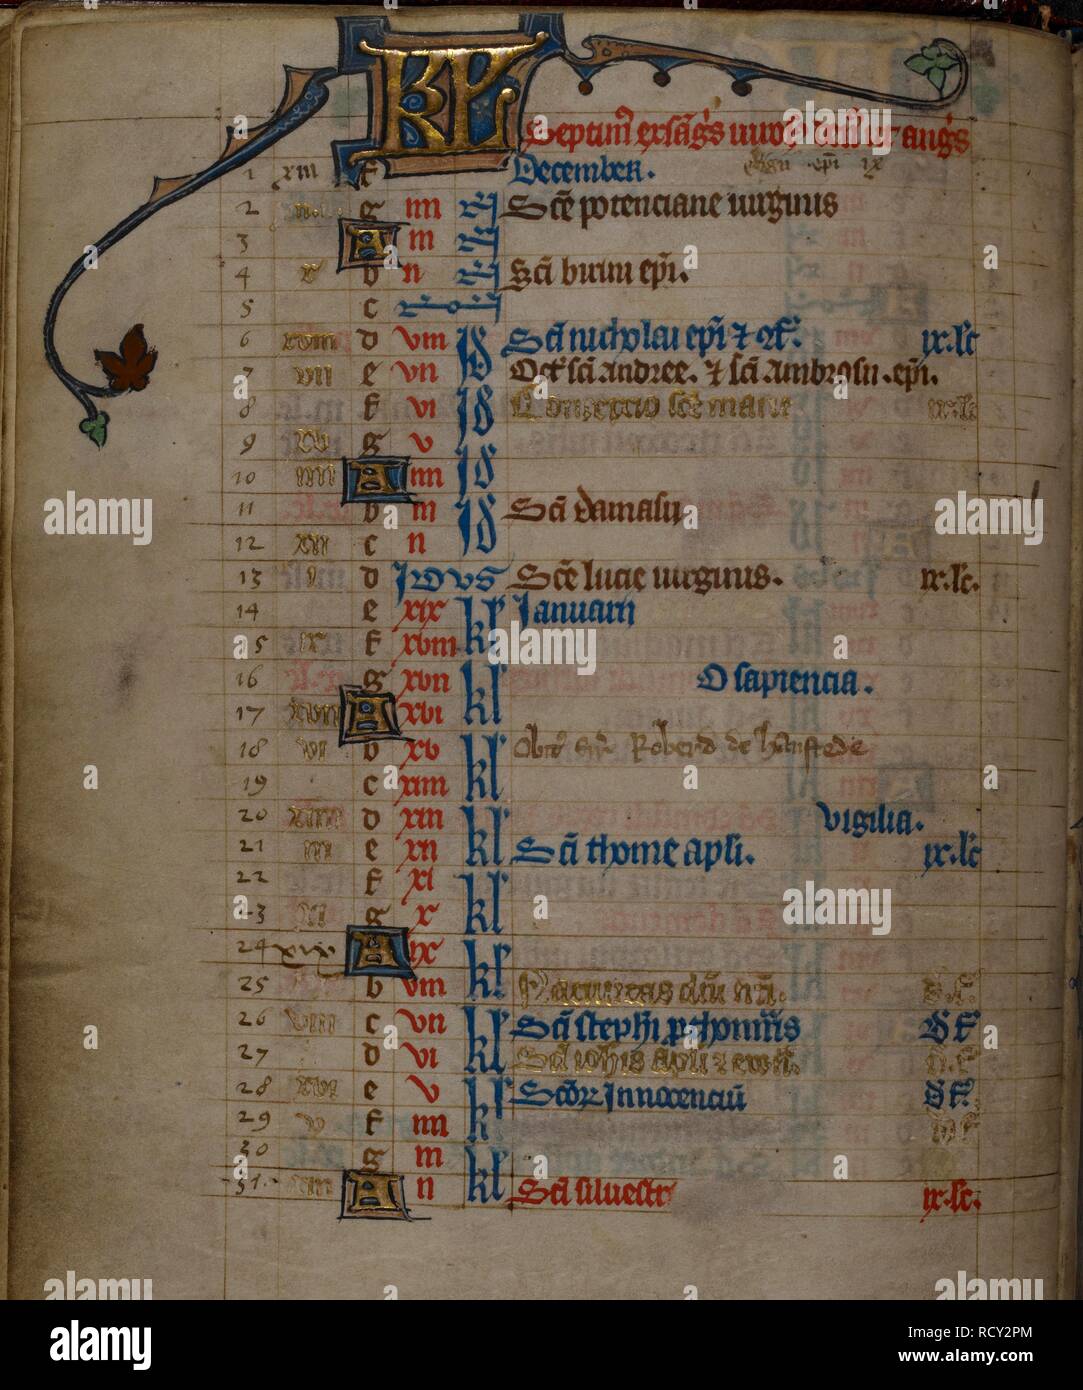 KL
Septimus exsanguis virosus denus ut anguis
1 xiii f December.
2 ii g iiii N Sce potenciane uirginis
3 A iii N
4 x b ii N Sci birini epi.
5 c Nonas
6 xviii d viii Id Sci nicholai epi ⁊ cf. ix. lc
7 vii e vii Id Oct' sci Andree. ⁊ sci Ambrosii. epi.
8 f vi Id Concepcio sce marie ix. lc
9 xv g v Id
10 iiii A iiii Id
11 b iii Id Sci damasii
12 xii c ii Id
13 i d Idus Sce lucie uirginis. ix. lc.
14 e xix kl Ianuarii
15 ix f xviii kl
16 g xvii kl O sapiencia.
17 xvii A xvi kl
18 vi b xv kl Obit' Roberd de hanstede
19 c xiiii kl
20 xiiii d xiii kl vigilia.
21 iii e xii kl Sci thome apli. ix. lc
22 f xi kl
23 xi g x kl
24 xix A ix kl
25 b viii kl Natiuitas dni nri.
26 viii c vii kl Sci stephi prothomris D F
27 d vi kl Sci iohis apli ⁊ ewg. D. F
28 xvi e v kl Scor Innocenciu D F.
29 v f iiii kl D F
30 g iii kl
31 xiii A ii kl Sci siluestr ix. lc.
alamy
Image ID: RCY2PM
www.alamy.com